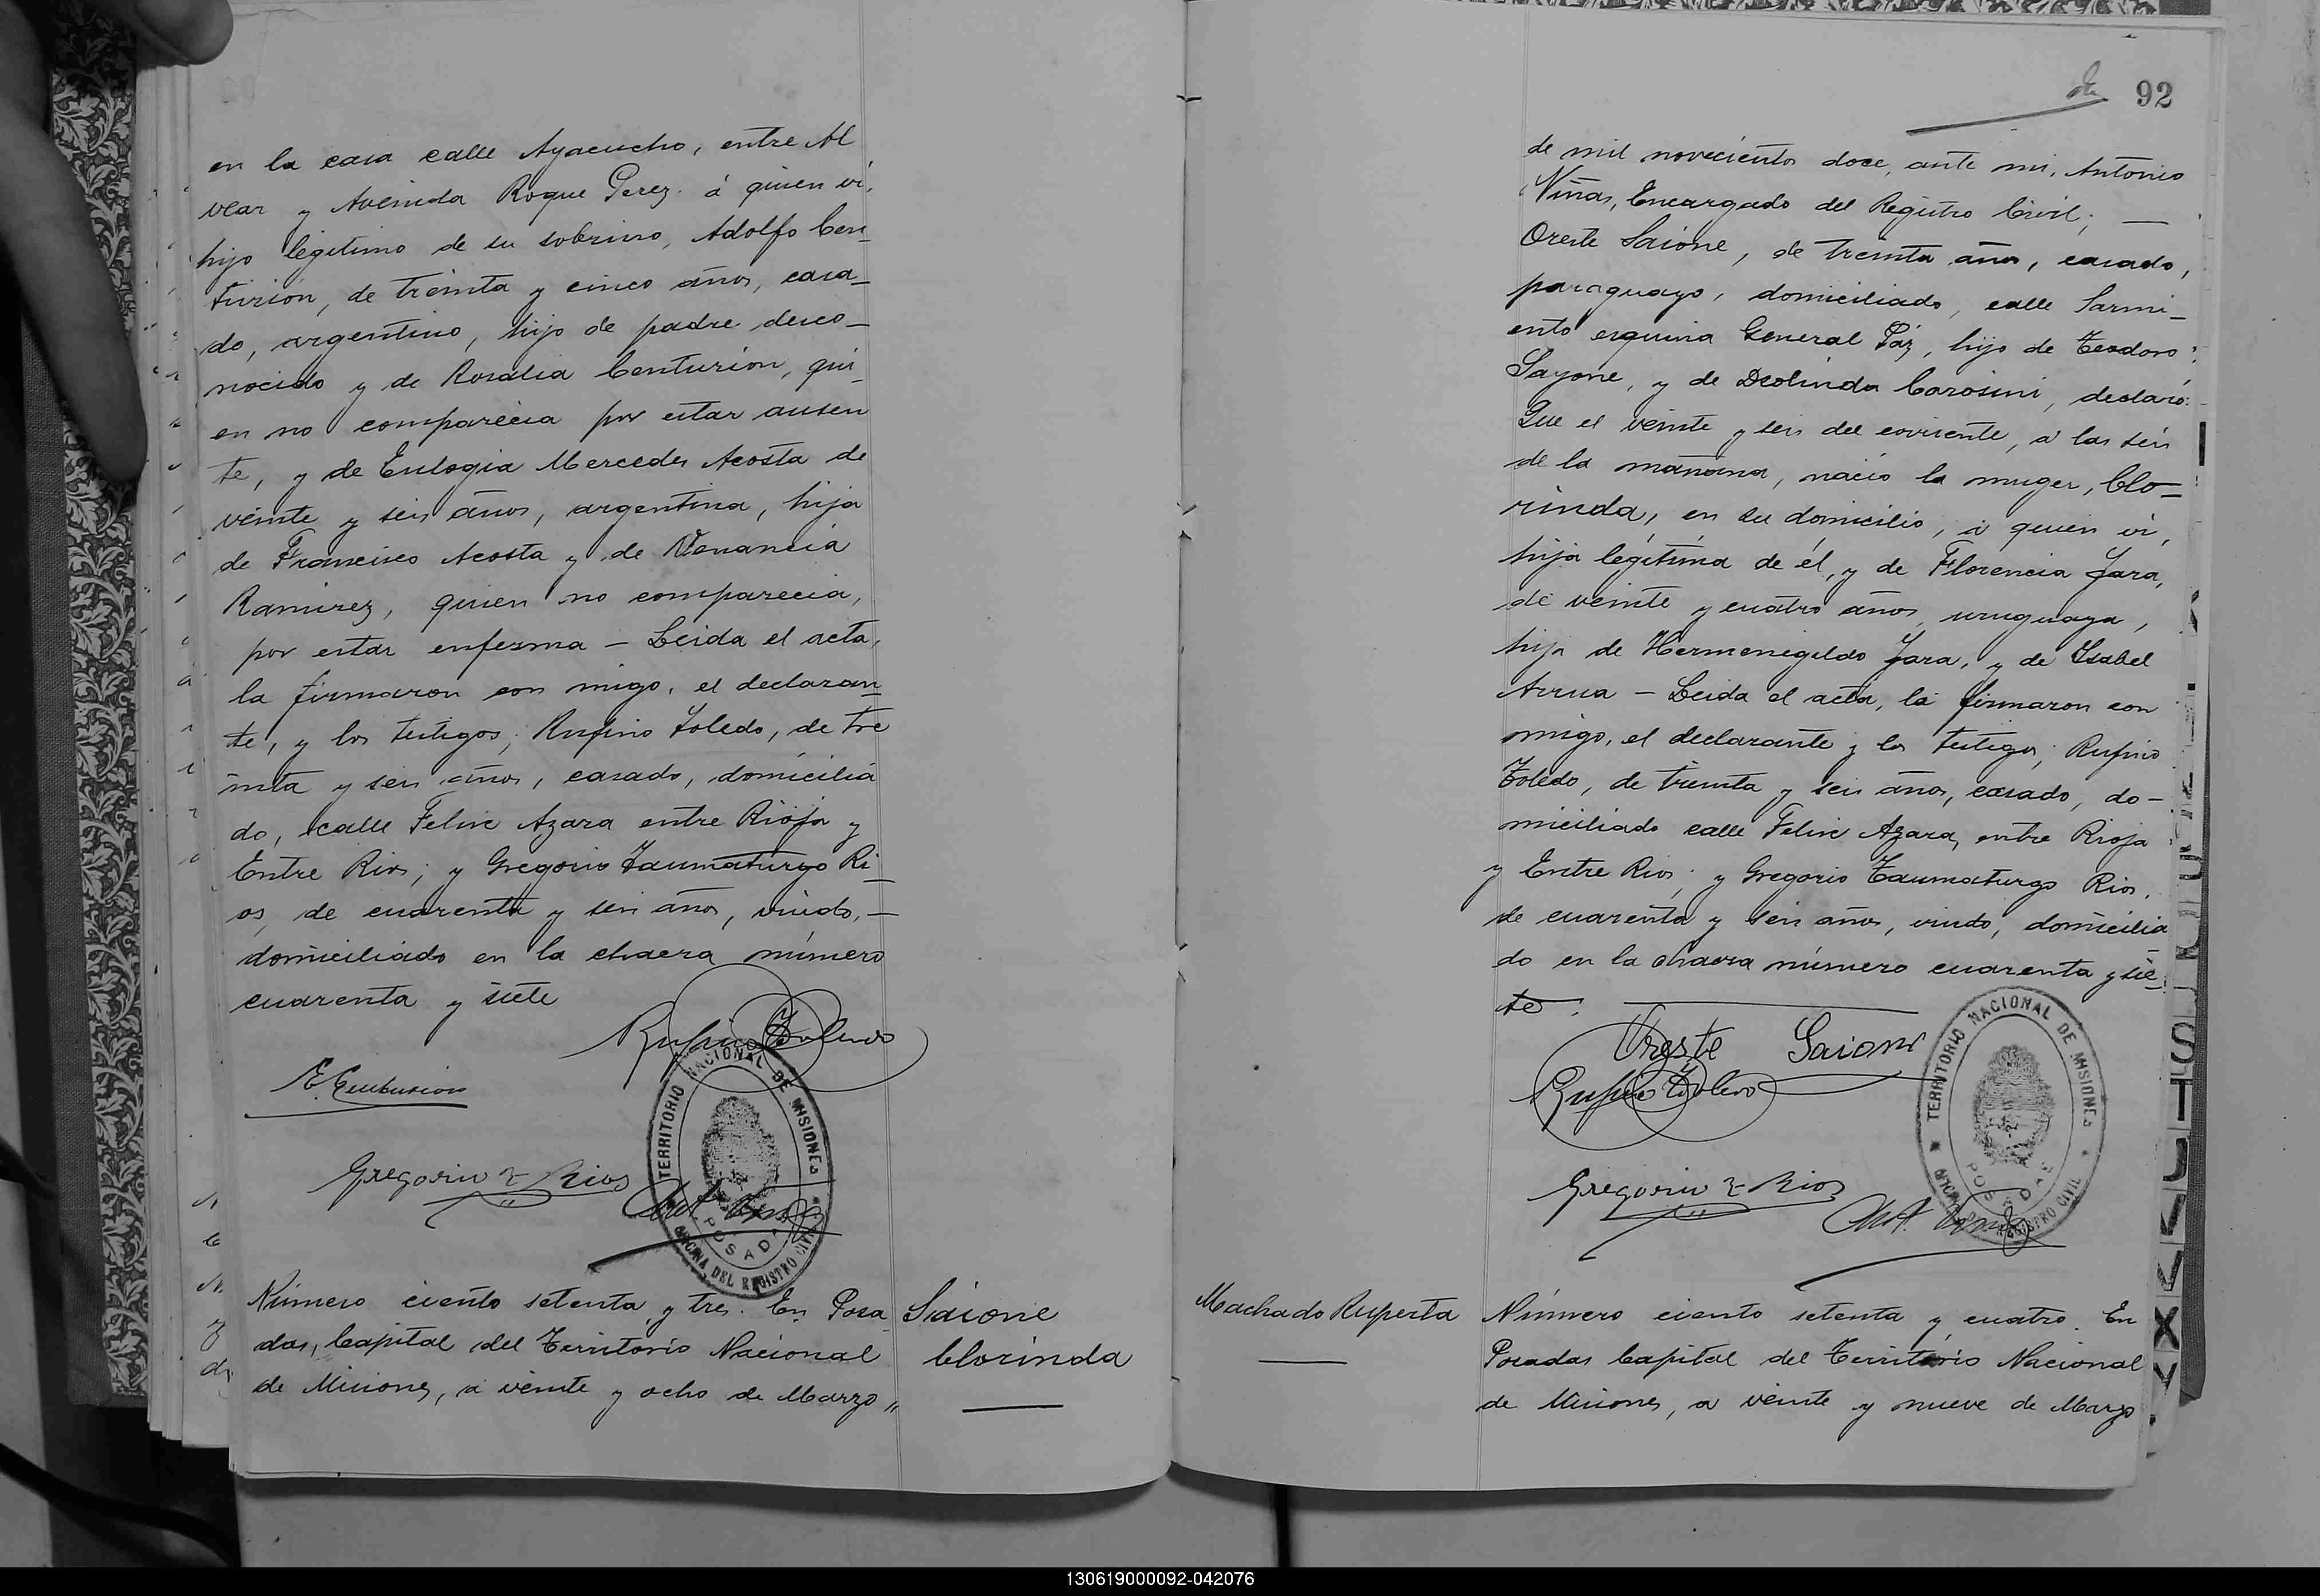 en la casa calle Ayacucho, entre Al
vear y Avenida Roque Perez. á quien ví,
hijo legitimo de su sobrino, Adolfo Cen_
turion, de treinta y cinco años, casa_
do, argentino, hijo de padre desco_
nocido y de Rosalia Centurion, qui_
en no comparecia por estar ausen
te, y de Eulogia Mercedes Acosta de
veinte y seis años, argentina, hija
de Francisco Acosta y de Venancia
Ramirez, quien no comparecia,
por estar enferma – Leida el acta,
la firmaron con migo, el declaran_
te, y los testigos; Rufino Toledo, de tre
inta y seis años, casado, domicilia
do, calle Felix Azara entre Rioja y
Entre Rios; y Gregorio Taumaturgo Ri_
os, de cuarenta y seis años, viudo, –
domiciliado en la chacra número
cuarenta y siete
Rufino Toledo
E. Centurion
Gregorio T Rios
Ant. Viñas
TERRITORIO NACIONAL DE MISIONES
POSADAS
OFICINA DEL REGISTRO CIVIL
Número ciento setenta y tres. En Posa
das, Capital del Territorio Nacional
de Misiones, a veinte y ocho de Marzo "
Saione
Clorinda
92
de mil novecientos doce, ante mi, Antonio
Viñas, Encargado del Registro Civil; —
Oreste Saione, de treinta años, casado,
paraguayo, domiciliado, calle Sarmi_
ento esquina General Páz, hijo de Teodoro
Sayone, y de Deolinda Carosini, declaró:
Que el veinte y seis del corriente, a las seis
de la mañana, nació la muger, Clo_
rinda, en su domicilio, á quien ví,
hija legítima de él, y de Florencia Jara,
de veinte y cuatro años, uruguaya,
hija de Hermenegildo Jara, y de Isabel
Arrua – Leida el acta, la firmaron con
migo, el declarante y los testigos; Rufino
Toledo, de treinta y seis años, casado, do –
miciliado calle Felix Azara, entre Rioja
y Entre Rios; y Gregorio Taumaturgo Rios,
de cuarenta y seis años, viudo, domicilia
do en la chacra número cuarenta y sie_
te.
Oreste Saione
Rufino Toledo
Gregorio T Rios
Ant. Viñas
TERRITORIO NACIONAL DE MISIONES
POSADAS
OFICINA DEL REGISTRO CIVIL
Machado Ruperta
Número ciento setenta y cuatro. En
Posadas Capital del Territorio Nacional
de Misiones, a veinte y nueve de Marzo
130619000092-042076